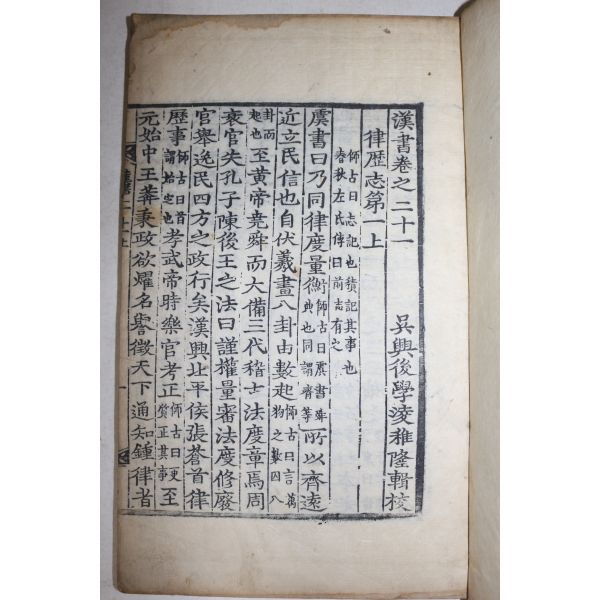 漢書卷之二十一
吳興後學凌稚隆輯校
律歷志第一上
師古曰志記也積記其事也
春秋左氏傳曰前志有之
虞書曰乃同律度量衡師古曰虞書舜典也同謂齊等所以齊遠
近立民信也自伏羲畫八卦由數起師古曰言萬物之數因八
卦而起也至黃帝堯舜而大備三代稽古法度章焉周
衰官失孔子陳後王之法曰謹權量審法度修廢
官舉逸民四方之政行矣漢興北平侯張蒼首律
歷事師古曰首謂始定也孝武帝時樂官考正師古曰更質正其事至
元始中王莽秉政欲燿名譽徵天下通知鍾律者